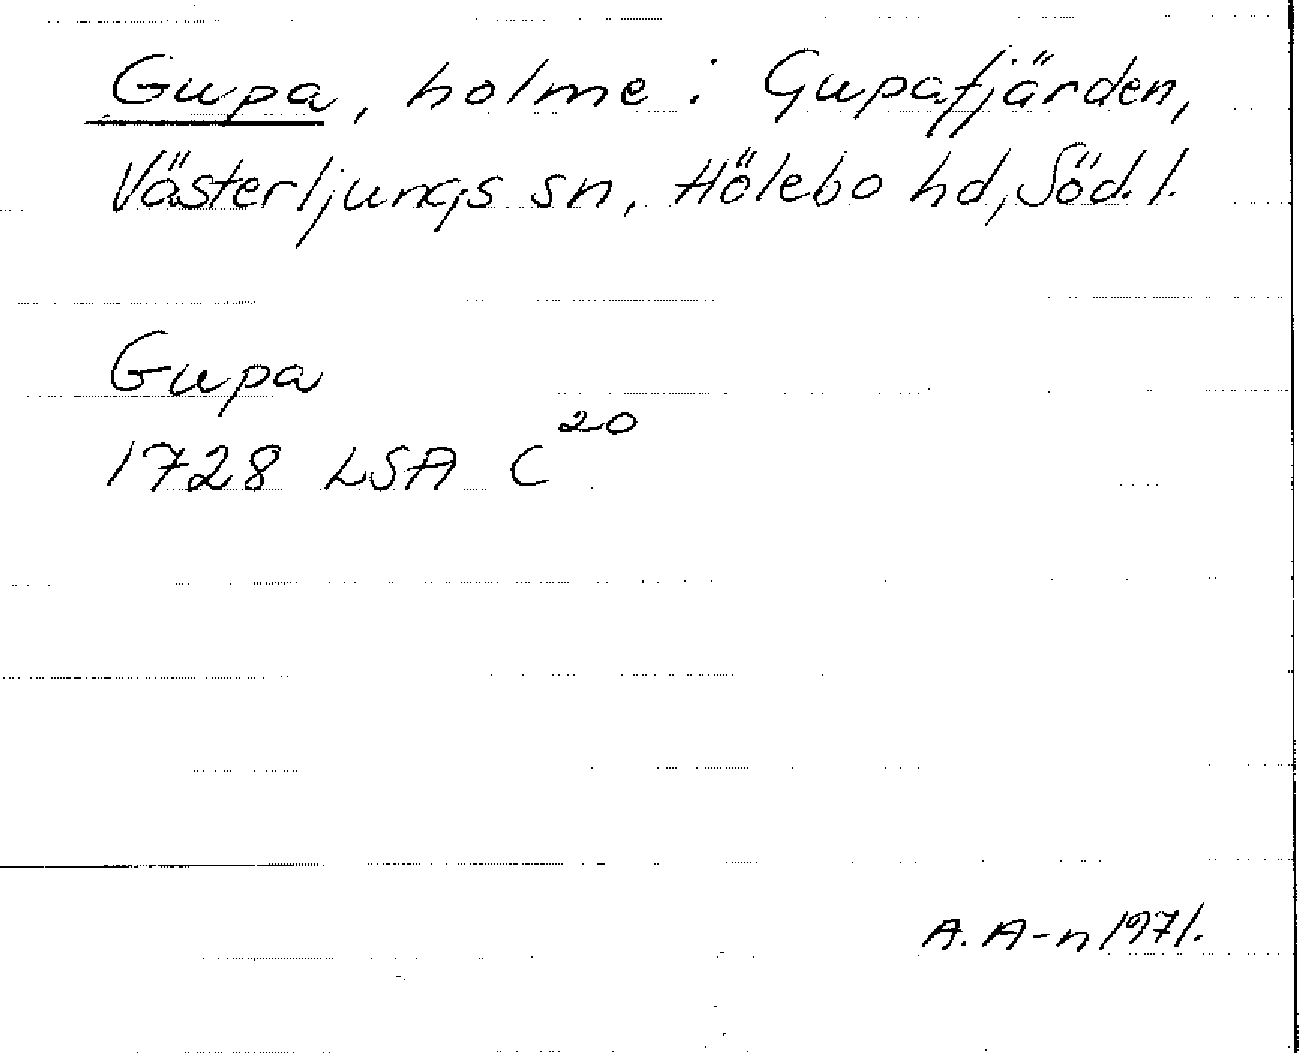 Gupa, holme i Gupafjärden,
Västerljungs sn, Hölebo hd, Söd. l.
Gupa
1728 LSA C20
A. A-n 1971.